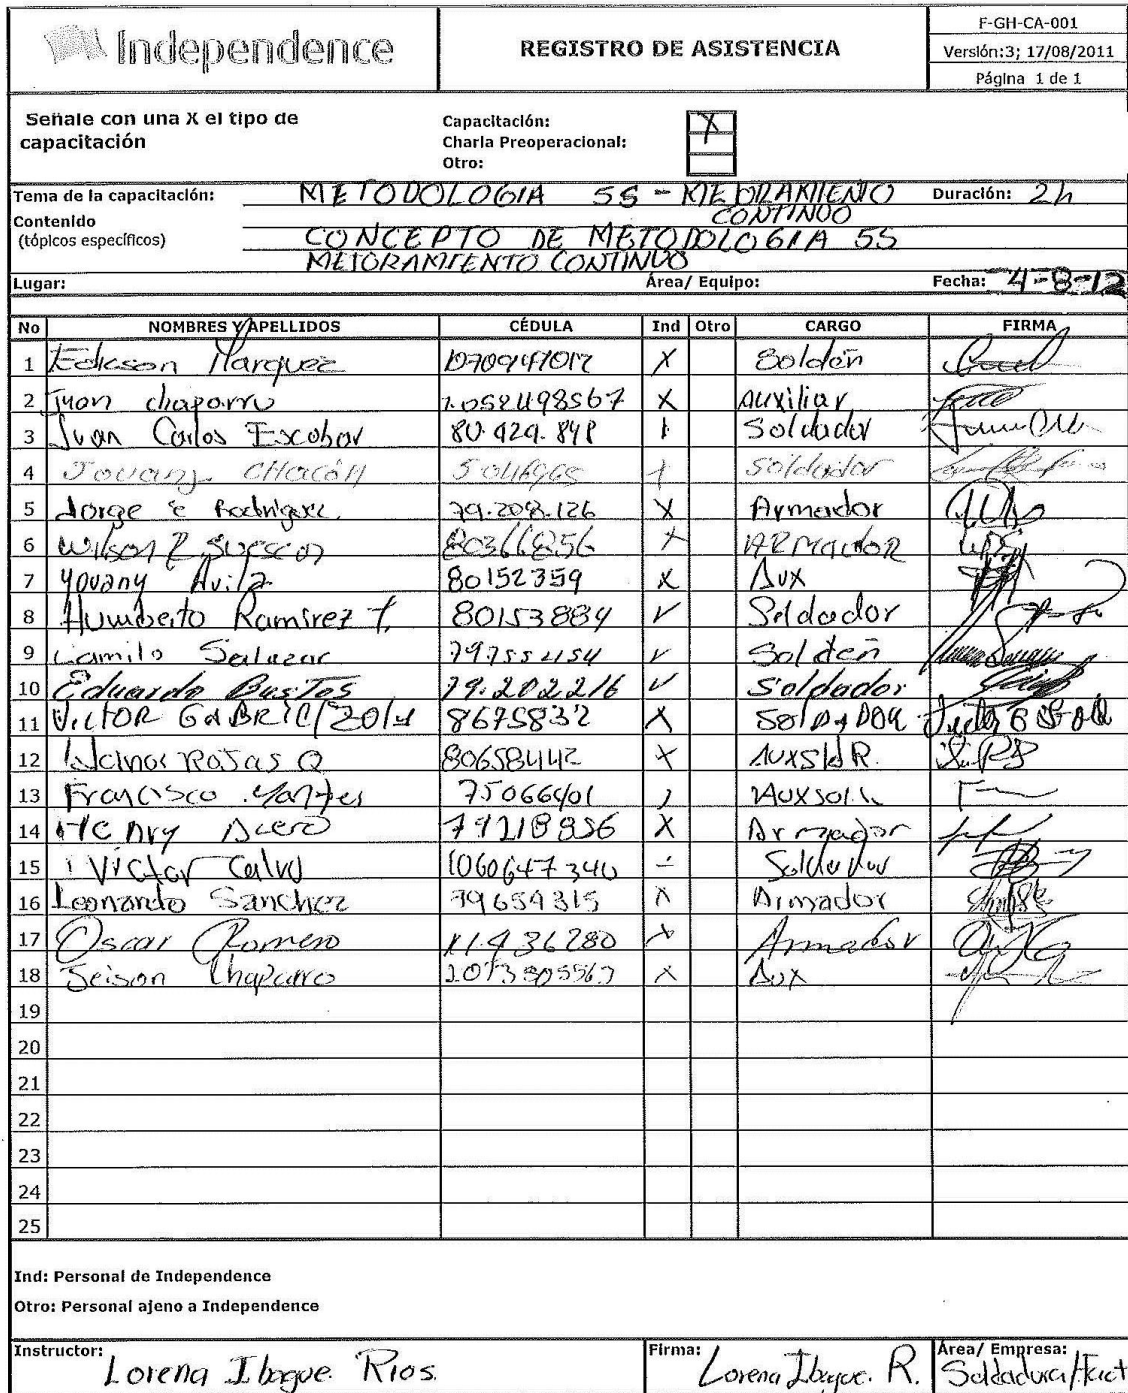 Independence
REGISTRO DE ASISTENCIA
F-GH-CA-001
Versión:3; 17/08/2011
Página 1 de 1
Señale con una X el tipo de capacitación
Capacitación: X
Charla Preoperacional:
Otro:
Tema de la capacitación: METODOLOGIA 5S - MEJORAMIENTO CONTINUO Duración: 2h
Contenido (tópicos específicos) CONCEPTO DE METODOLOGIA 5S
MEJORAMIENTO CONTINUO
Lugar: Área/ Equipo: Fecha: 4-8-12
No NOMBRES Y APELLIDOS CÉDULA Ind Otro CARGO FIRMA
1 Edicson Marquez X
2 Juan chaparro 1.052.498567 X Auxiliar
3 Juan Carlos Escobar 80.429.848 Soldador
4 Jovany Chacón Soldador
5 Jorge e Rodriguez. 79.208.126 X Armador
6 Wilson R Suescun 80366856 X ARMADOR
7 Yovany Avila 80152359 X Aux
8 Humberto Ramirez T. 80153884 Soldador
9 Camilo Salazar
10 Eduardo Bustos 79.202.216 Soldador
11 VICTOR GABRIEL 8675832 X SOLDADOR
12 Rojas Q 80658442 X
13 Francisco 75066401
14 Henry Acero 79218856 X Armador
15 Victor Calvo 1060647340 Soldador
16 Leonardo Sanchez 79654315 X Armador
17 Oscar Romero 11.436280 X Armador
18 Jeison Chaparro X Aux
19
20
21
22
23
24
25
Ind: Personal de Independence
Otro: Personal ajeno a Independence
Instructor: Lorena Ibague. Rios. Firma: Lorena Ibague. R. Área/ Empresa: Soldadura/